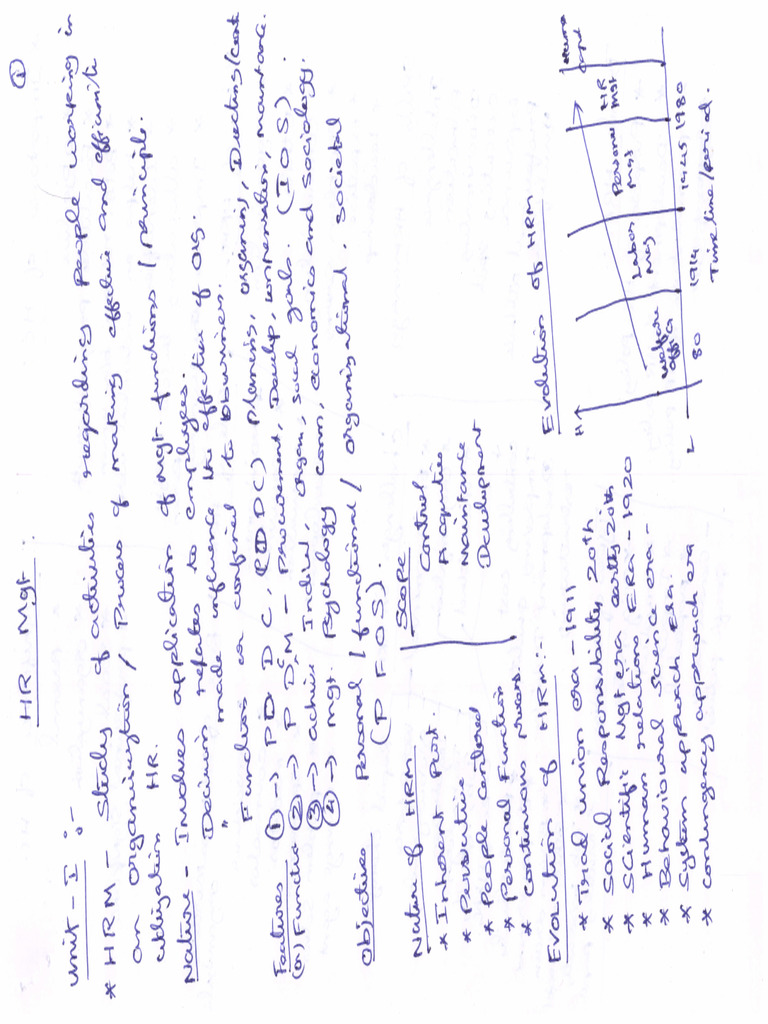 ①
HR Mgt :
Unit - I :-
* HRM - Study of activities regarding people working in
an organisation / Process of making effective and efficient
utilization HR.
Nature - Involves application of Mgt. functions / principle.
Decision relates to employees.
" made influence the effective of org.
Function are confined to business.
Features ① → PO DC, (DDC) Planning, organing, Directing / Cont
(or) Functio ② → P D, M - Procurement, Develop, compensation, maintance.
③ → achive Indivi, organ, socal goals. (IOS)
④ → Mgt. Psychology Comm, economics and sociology.
Objectives Personal / functional / organisational, societal
(P F O S).
Nature of HRM
* Inherent Part.
* Pervasive
* People centered
* Personal Function
* Continuous
Scope
Control
Maintance
Development
Evolution of HRM :-
* Trad union era - 1911
* Social Responsibility 20th
* Scientific Mgt era 20th
* Human relations ERA - 1920
* Behavioural Science era -
* System approach era.
* Contingency approach era
Evolution of HRM
H
Welfare offics
Labor Mg
Personne Mgt
HR Mgt
L
80 1914 1945 1980
Timeline / period.